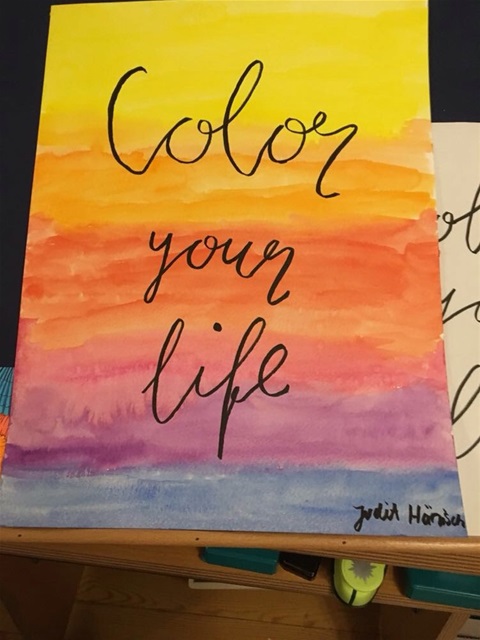 Color
your
life
Judit